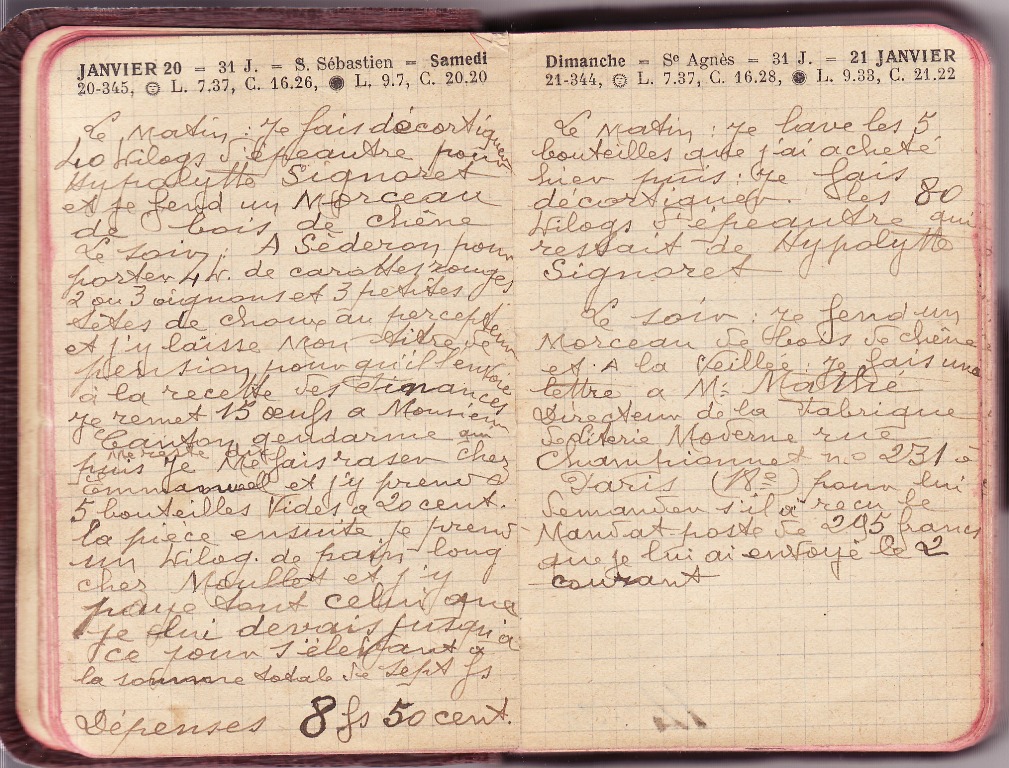 JANVIER 20 – 31 J. – S. Sébastien – Samedi
20-345, L. 7.37, C. 16.26, L. 9.7, C. 20.20
Le Matin : Je fais décortiquer
40 Kilogs d'épeautre pour
Hypolytte Signoret
et je fend un Morceau
de bois de chêne
Le soir : A Séderon pour
porter 4 K. de carottes rouges
2 ou 3 oignons et 3 petites
têtes de choux au percepteur
et j'y laisse mon titre de
pension pour qu'il l'envoie
à la recette des finances
Je remet 15 œufs a Monsieur
Canton gendarme qui
Me reste
puis Je Me fais raser chez
Emmanuel et j'y prend
5 bouteilles Vides à 20 cent.
la pièce ensuite je prend
un Kilog. de pain long
chez Moullet et j'y
paye tout celui que
je lui devais jusqu'à
ce jour s'élevant à
la somme totale de sept fs
Dépenses 8 fs 50 cent.
Dimanche – Se Agnès – 31 J. – 21 JANVIER
21-344, L. 7.37, C. 16.28, L. 9.33, C. 21.22
Le Matin : Je lave les 5
bouteilles que j'ai acheté
hier puis : Je fais
décortiquer. les 80
Kilogs d'épeautre qui
restait de Hypolytte
Signoret
Le soir : Je fend un
Morceau de bois de chêne
et. A la Veillée Je fais une
lettre a Mr Mathé
Directeur de la Fabrique
de literie Moderne rue
Championnet no 231 à
Paris (18e) pour lui
demander s'il à reçu le
Mandat poste de 295 francs
que je lui ai envoyé le 2
courant